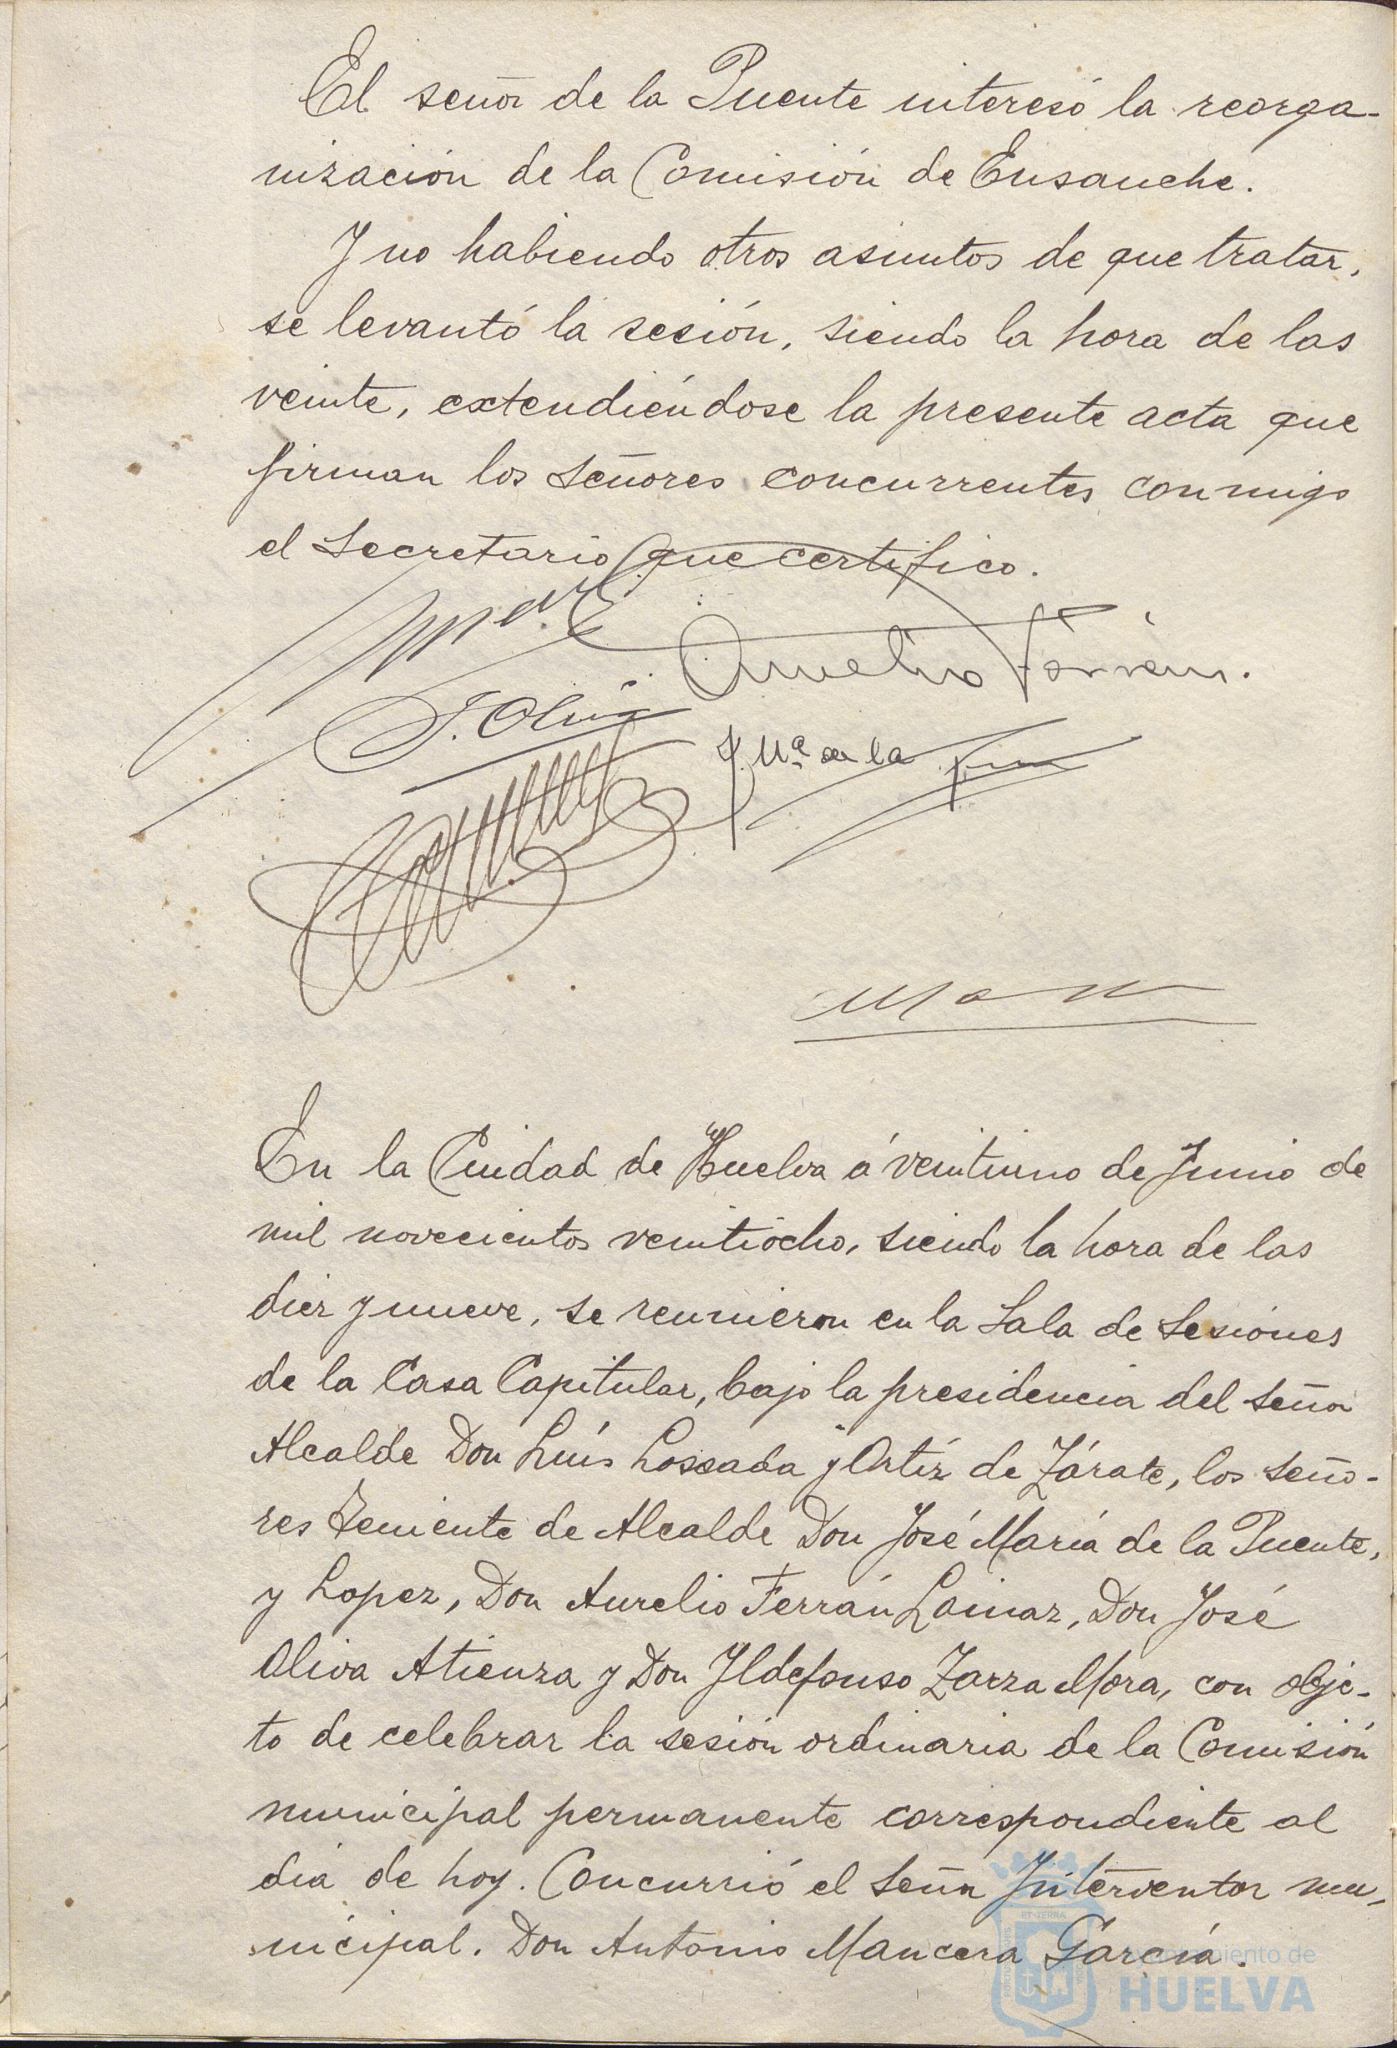 El señor de la Puente interesó la reorga-
nización de la Comisión de Ensanche.
Y no habiendo otros asuntos de que tratar,
se levantó la sesión, siendo la hora de las
veinte, extendiéndose la presente acta que
firman los Señores concurrentes conmigo
el Secretario que certifico.
Aurelio Ferrán.
J. Oliva
J. Mª de la
En la Ciudad de Huelva á veintiuno de Junio de
mil novecientos veintiocho, siendo la hora de las
diez y nueve, se reunieron en la Sala de Sesiones
de la Casa Capitular, bajo la presidencia del Señor
Alcalde Don Luís Lossada y Ortíz de Zárate, los Seño-
res Teniente de Alcalde Don José María de la Puente,
y Lopez, Don Aurelio Ferrán Don José
Oliva Atienza y Don Yldefonso Zarza Mora, con obje-
to de celebrar la sesión ordinaria de la Comisión
municipal permanente correspondiente al
dia de hoy. Concurrió el Señor Interventor mu-
nicipal. Don Antonio Mancera García.
Ayuntamiento de
HUELVA